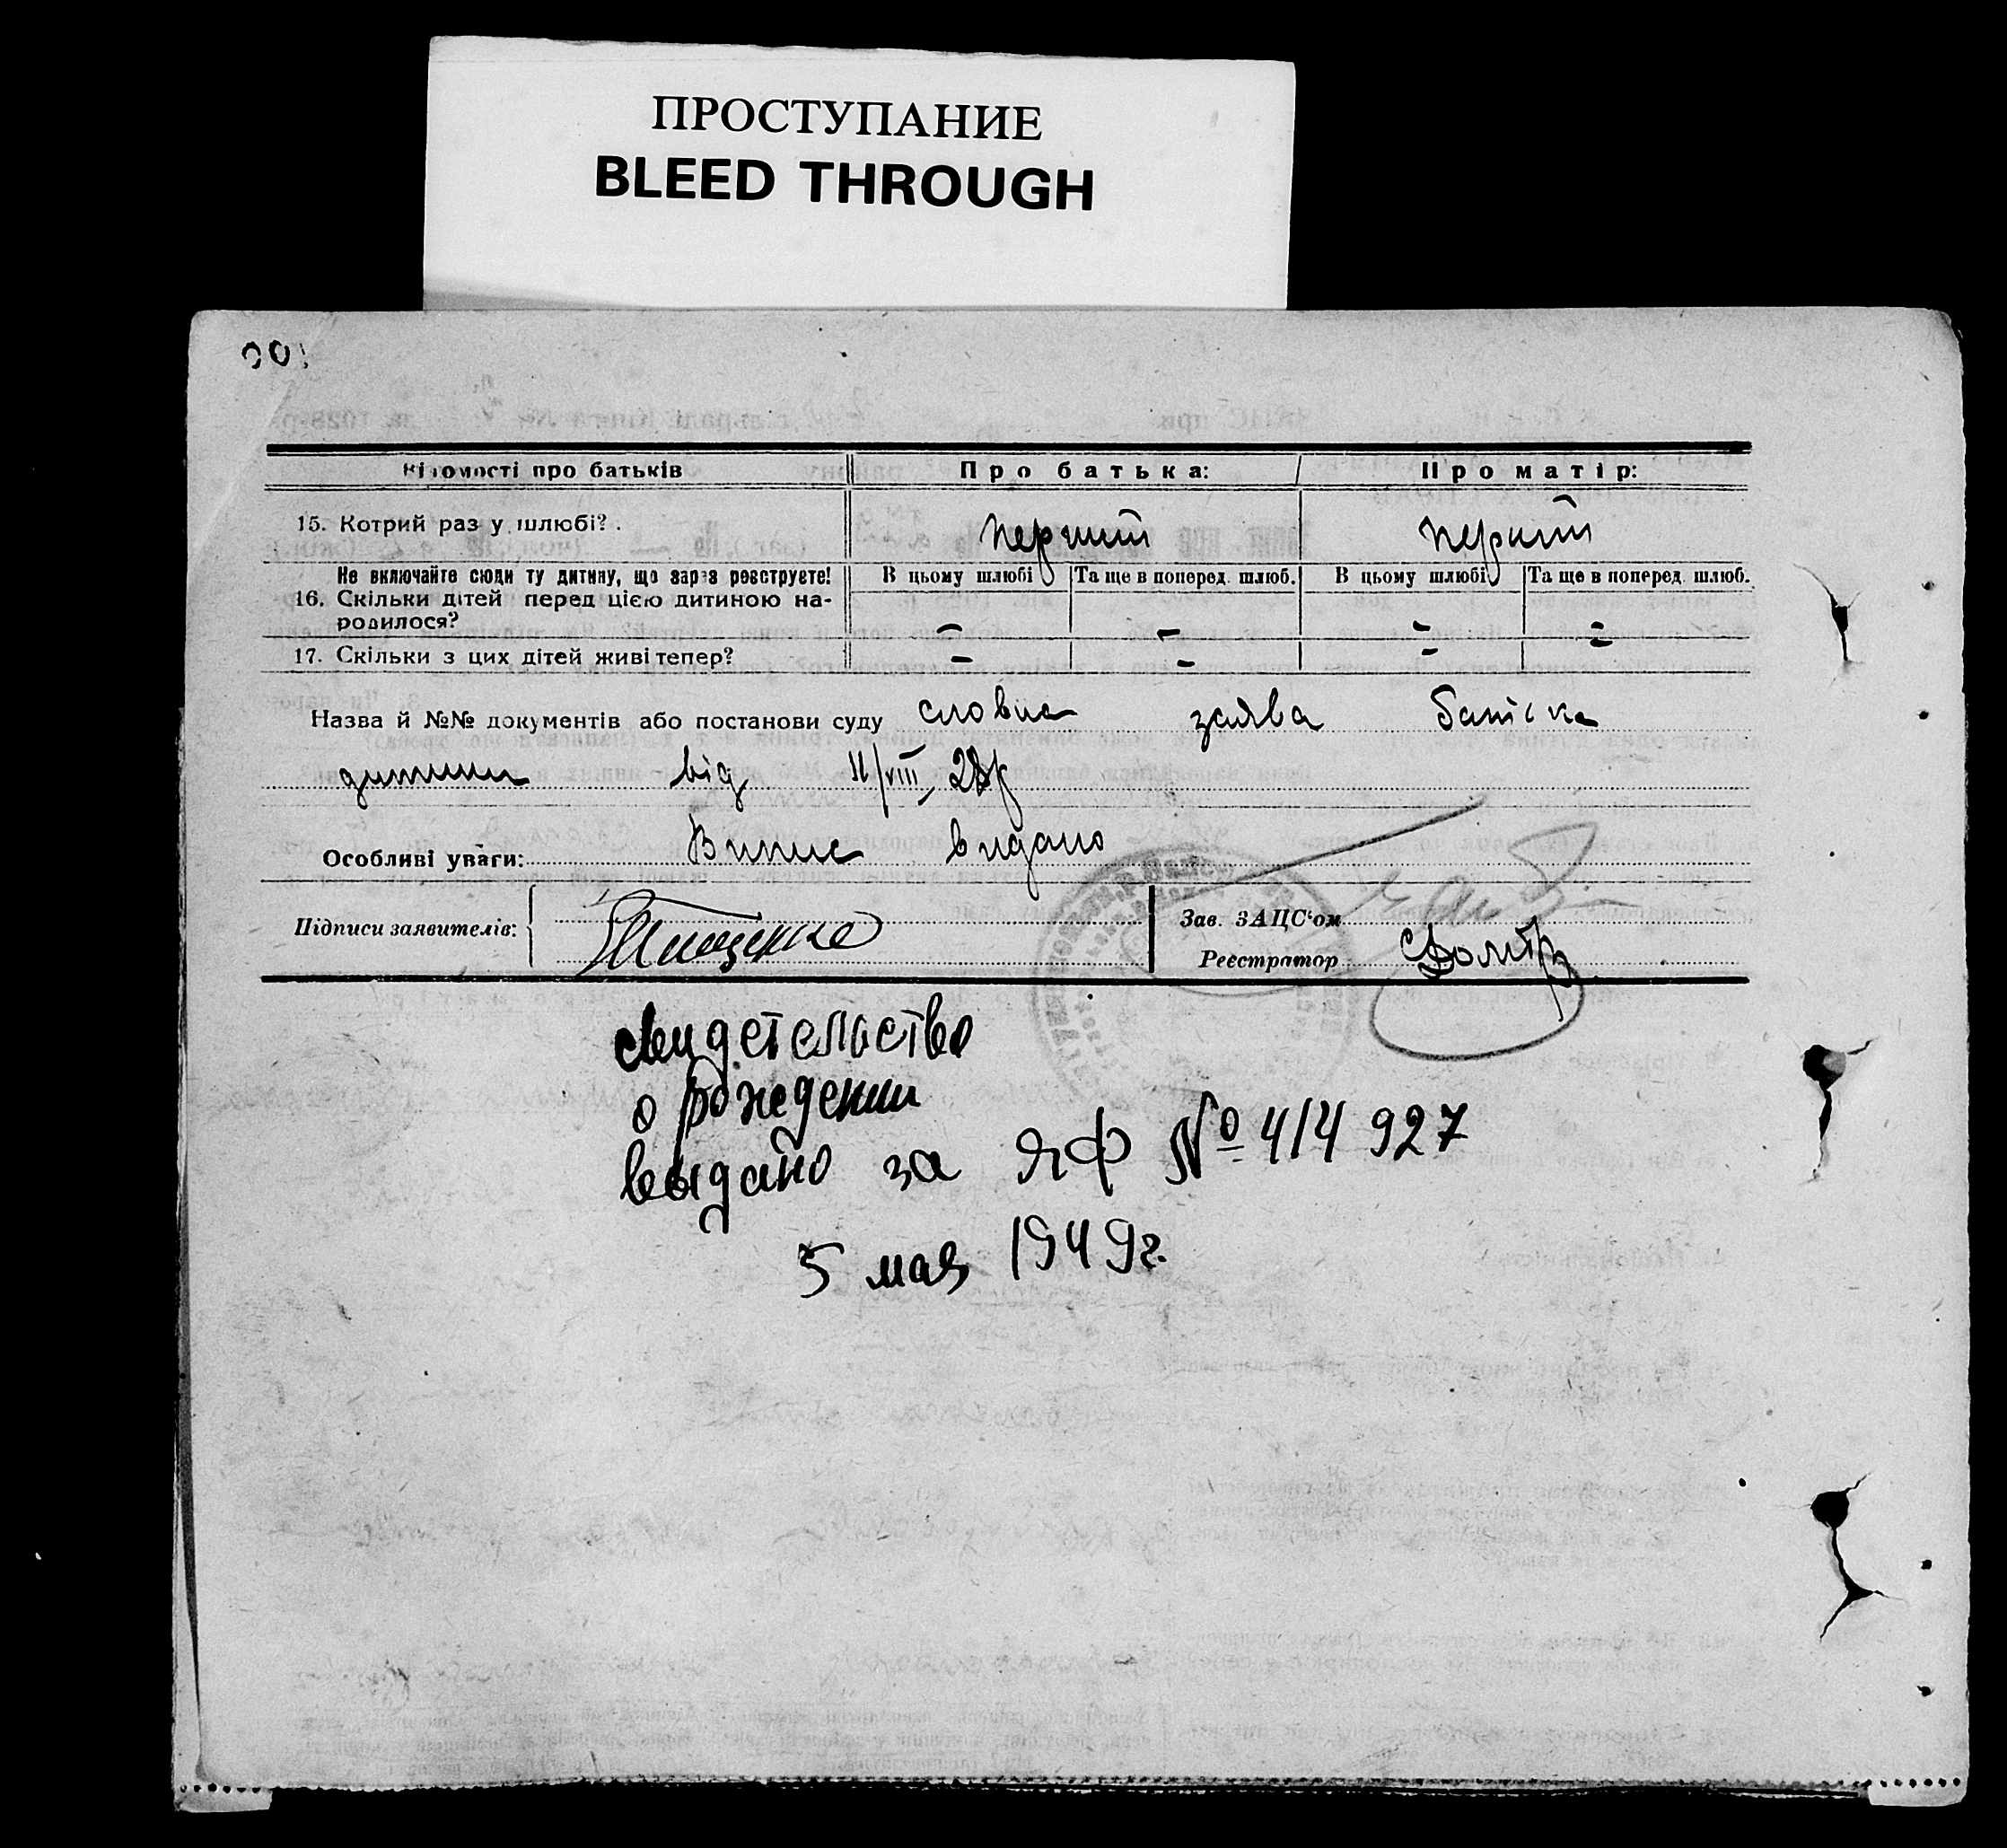 ПРОСТУПАНИЕ
BLEED THROUGH
Відомості про батьків Про батька: Про матір:
15. Котрий раз у шлюбі? перший перший
Не включайте сюди ту дитину, що зараз реєструєте! В цьому шлюбі Та ще в поперед. шлюб. В цьому шлюбі Та ще в поперед. шлюб.
16. Скільки дітей перед цією дитиною на-
родилося? – – – –
17. Скільки з цих дітей живі тепер? – – – –
Назва й №№ документів або постанови суду словна заява батька
дитини від 11/VIII 28р
Особливі уваги: Випис видано
Підписи заявителів: Тищенко
Зав. ЗАЦС'ом
Реєстратор
свидетельство
о рождении
выдано за ЯФ № 414 927
5 мая 1949г.